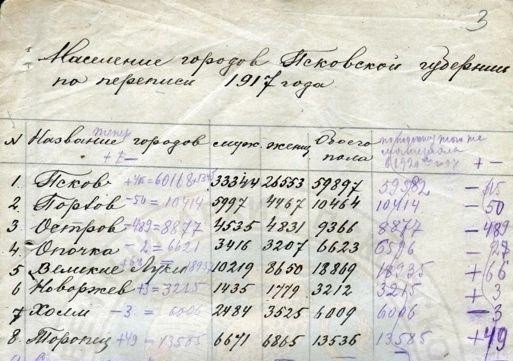 3
Население городов Псковской губернии
по переписи 1917 года
N Название городов мужч. женщ. Обоего пола + -
1. Псков = 60168 33344 26553 59897 59582 -
2 Порхов -50 = 10414 5997 4467 10464 10414 - 50
3 Остров -489 = 8877 4535 4831 9366 8877 - 489
4 Опочка - 2 = 6621 3416 3207 6623 6596 - 27
5 Великие Луки 10219 8650 18869 18935 + 66
6 Новоржев +3 = 3215 1435 1779 3212 3215 + 3
7 Холм - 3 = 6006 2484 3525 6009 6006 - 3
8. Торопец +49 - 13585 6671 6865 13536 13585 +49